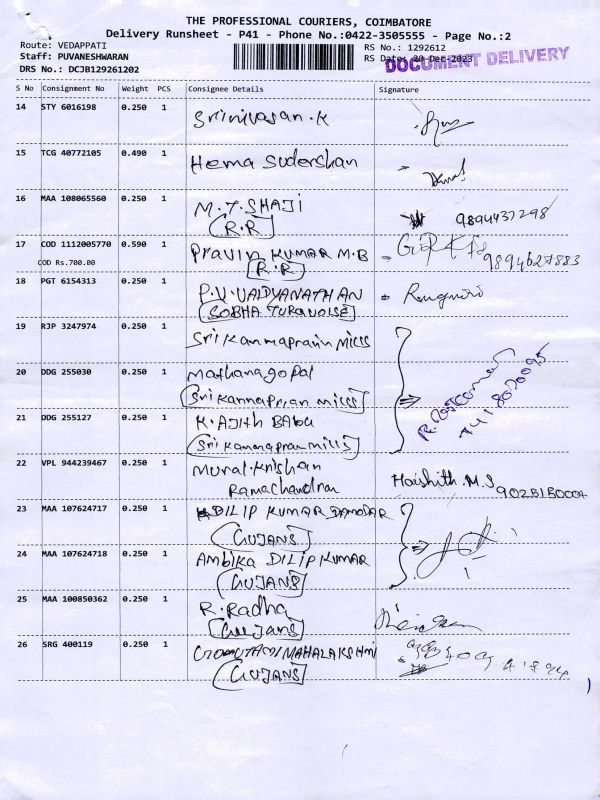 THE PROFESSIONAL COURIERS, COIMBATORE
Delivery Runsheet - P41 - Phone No.:0422-3505555 - Page No.:2
Route: VEDAPPATI
Staff: PUVANESHWARAN
DRS No.: DCJB129261202
RS No.: 1292612
RS Date: 20-Dec-2023
DOCUMENT DELIVERY
S No Consignment No Weight PCS Consignee Details Signature
14 STY 6016198 0.250 1 Srinivasan.K
15 TCG 40772105 0.490 1 Hema Sudershan
16 MAA 108065560 0.250 1 M.T.SHAJI
(R.R) 9894437298
17 COD 1112005770 0.590 1 Pravin KUMAR M.B
COD Rs.700.00 (R.R) 9894627883
18 PGT 6154313 0.250 1 P.V.VAIDYANATHAN
(SOBHA TURQUOISE)
19 RJP 3247974 0.250 1 Sri Kannapran Mills
20 DDG 255030 0.250 1 Mathanagopal
(Sri Kannapran Mills)
21 DDG 255127 0.250 1 K.AJith BAbu
(Sri Kannapran Mills)
22 VPL 944239467 0.250 1 Murali Krishan
Ramachandran
23 MAA 107624717 0.250 1 DILIP KUMAR DAMODAR
(GUJANS)
24 MAA 107624718 0.250 1 Ambika DILIP KUMAR
(GUJANS)
25 MAA 100850362 0.250 1 R.Radha
(GUJANS)
26 SRG 400119 0.250 1 MAHALAKSHMI
(GUJANS)